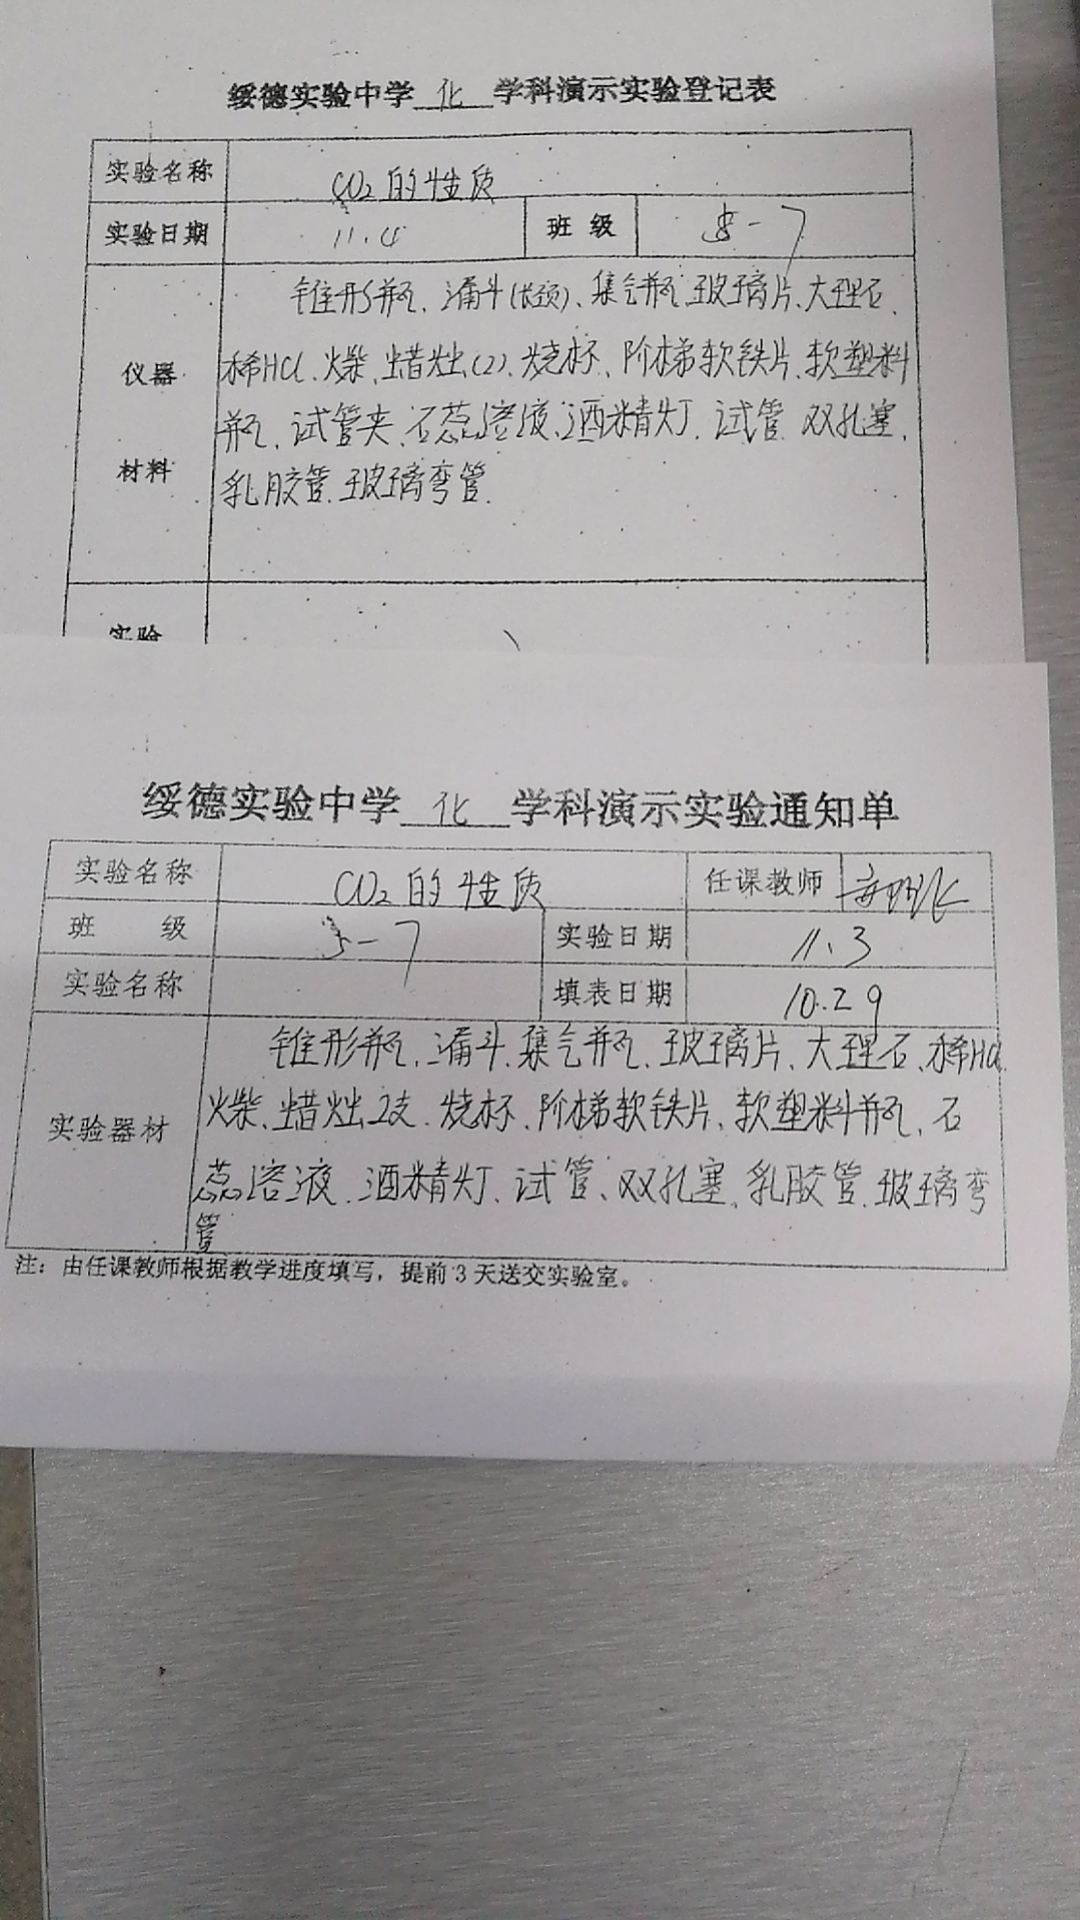 绥德实验中学 化 学科演示实验登记表
实验名称 CO₂的性质
实验日期 11.4 班级 -7
锥形瓶、漏斗(长颈)、集气瓶、玻璃片、大理石、
仪器 稀HCl、火柴、蜡烛(2)、烧杯、阶梯软铁片、软塑料
瓶、试管夹、石蕊溶液、酒精灯、试管、双孔塞、
材料 乳胶管、玻璃弯管.
实验
绥德实验中学 化 学科演示实验通知单
实验名称 CO₂的性质 任课教师
班 级 -7 实验日期 11.3
实验名称 填表日期 10.29
锥形瓶、漏斗、集气瓶、玻璃片、大理石、稀HCl
实验器材 火柴、蜡烛2支、烧杯、阶梯软铁片、软塑料瓶、石
蕊溶液、酒精灯、试管、双孔塞、乳胶管、玻璃弯
管
注：由任课教师根据教学进度填写，提前3天送交实验室。